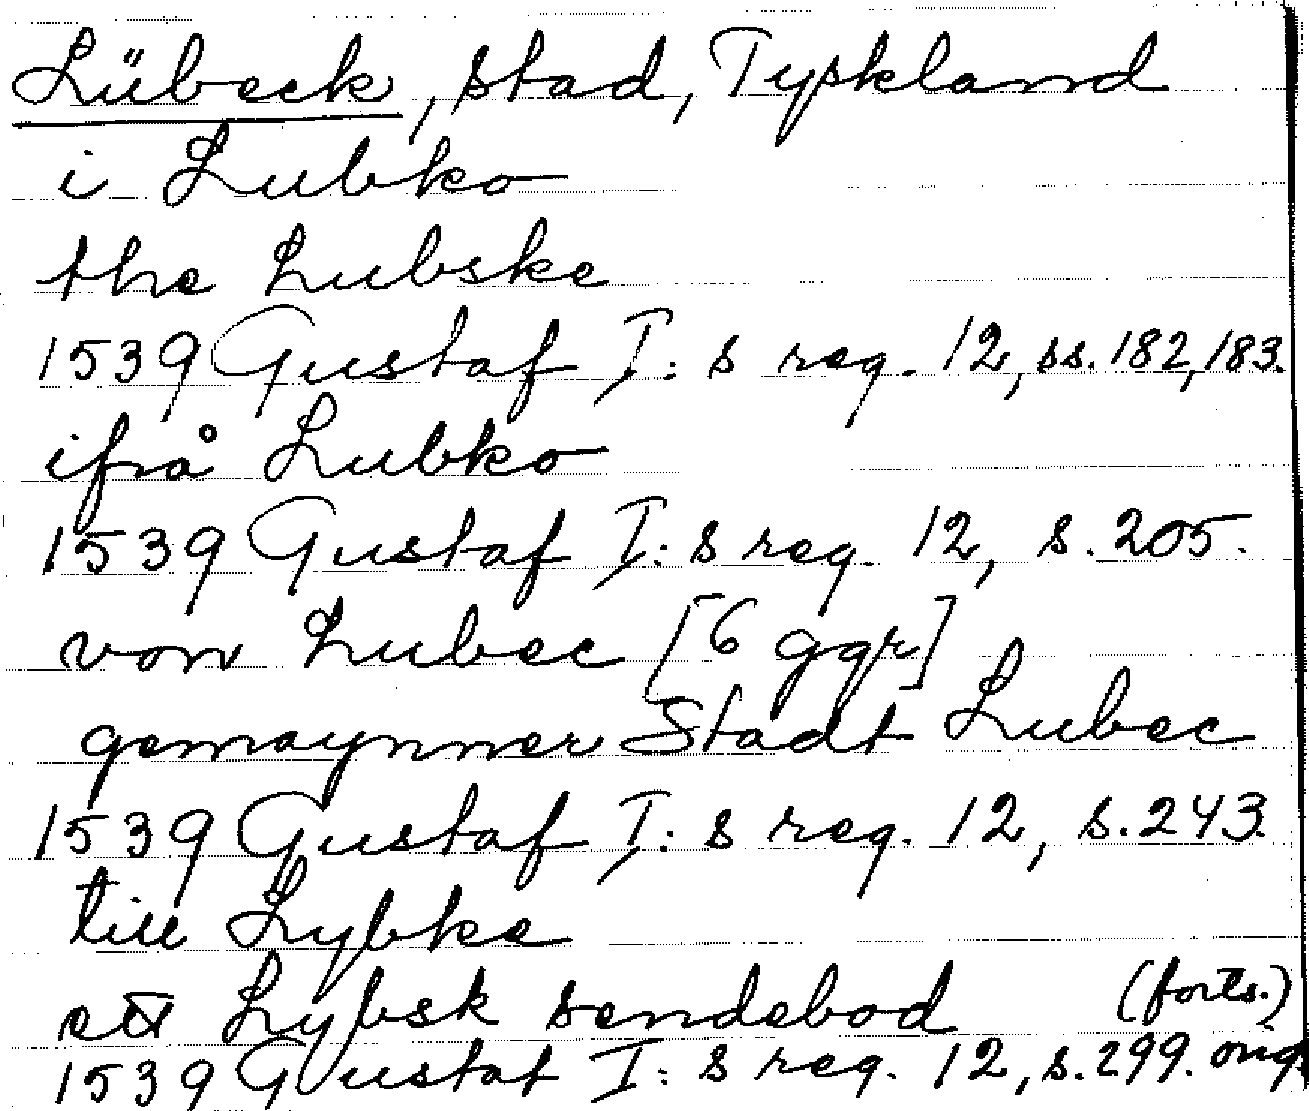 Lübeck, stad, Tyskland
i Lubko
the Lubske
1539 Gustaf I:s reg. 12, ss. 182, 183.
ifrå Lubko
1539 Gustaf I:s reg. 12, s. 205.
von Lubec [6 ggr]
gemaynner Stadt Lubec
1539 Gustaf I:s reg. 12, s. 243.
till Lybke
ett Lybsk sendebod (forts.)
1539 Gustaf I:s reg. 12, s. 299. orig.